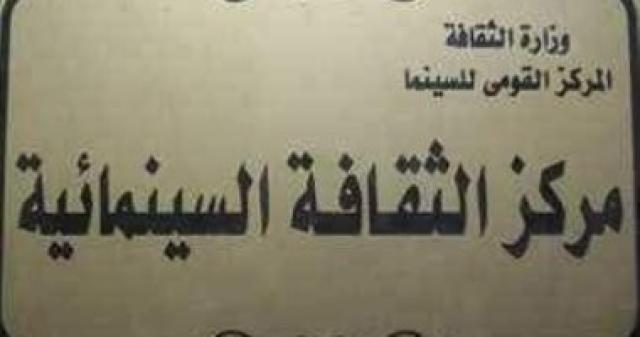 وزارة الثقافة
المركز القومى للسينما
مركز الثقافة السينمائية